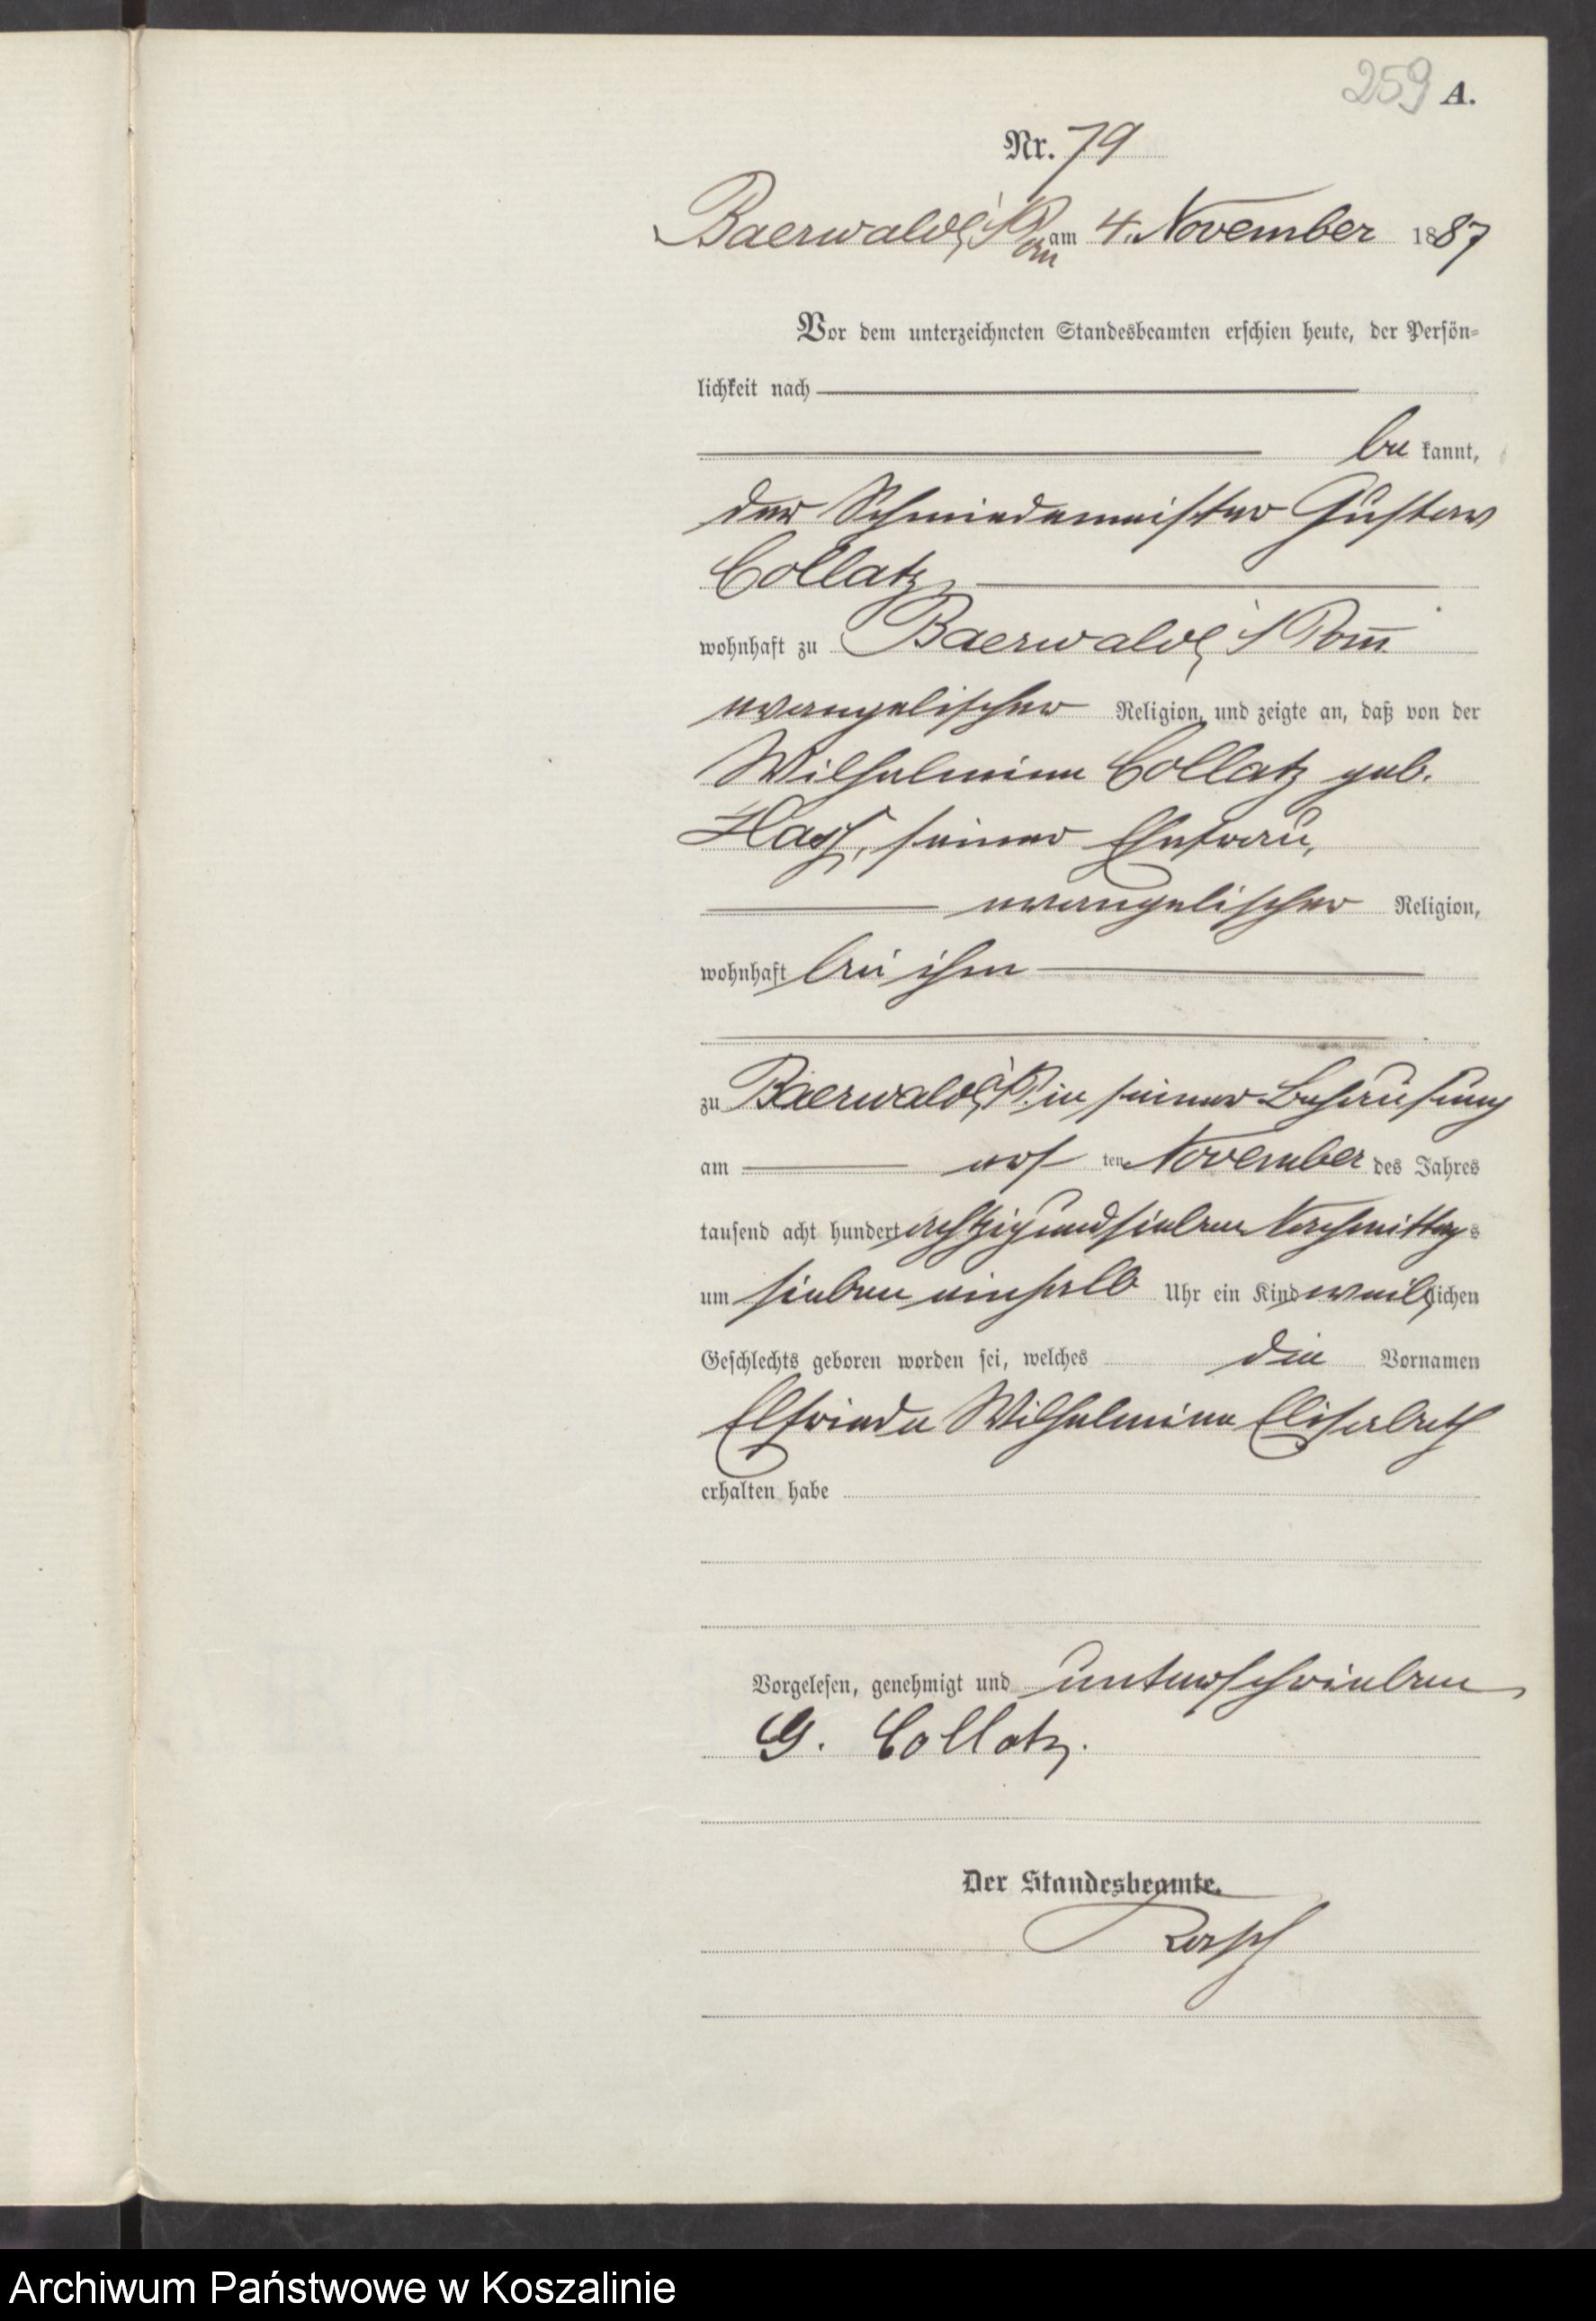 259 A.
Nr. 79
Baerwalde i/Pom am 4. November 1887
Vor dem unterzeichneten Standesbeamten erschien heute, der Persön-
lichkeit nach
be kannt,
der Schmiedemeister Gustav
Collatz
wohnhaft zu Baerwalde i/Pom̅
evangelischer Religion, und zeigte an, daß von der
Wilhelmine Collatz geb.
seiner Ehefrau,
evangelischer Religion,
wohnhaft bei ihm
zu Baerwalde i/P. in seiner Behausung
am ten November des Jahres
tausend acht hundert achtzig und sieben Nachmittags
um sieben einhalb Uhr ein Kind weiblichen
Geschlechts geboren worden sei, welches die Vornamen
Elfriede Wilhelmine Elisabeth
erhalten habe
Vorgelesen, genehmigt und unterschrieben
G. Collatz.
Der Standesbeamte.
Archiwum Państwowe w Koszalinie